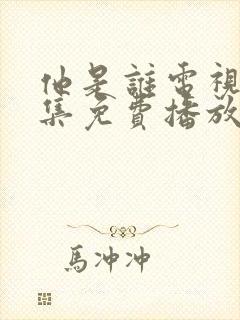 他是誰電視
集免費播放
馬冲冲